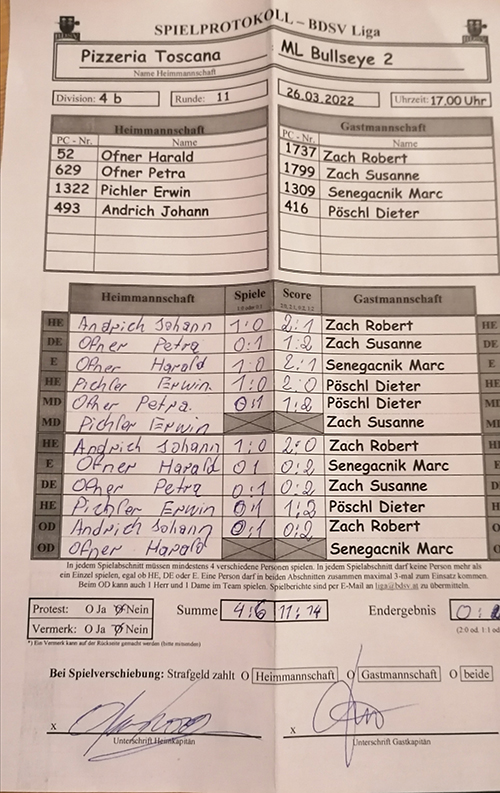 SPIELPROTOKOLL - BDSV Liga
Pizzeria Toscana ML Bullseye 2
Name Heimmannschaft
Division: 4 b Runde: 11 26.03.2022 Uhrzeit: 17.00 Uhr
Heimmannschaft Gastmannschaft
PC - Nr. Name PC - Nr. Name
52 Ofner Harald 1737 Zach Robert
629 Ofner Petra 1799 Zach Susanne
1322 Pichler Erwin 1309 Senegacnik Marc
493 Andrich Johann 416 Pöschl Dieter
Heimmannschaft Spiele Score Gastmannschaft
HE Andrich Johann 1:0 2:1 Zach Robert HE
DE Ofner Petra 0:1 1:2 Zach Susanne DE
E Ofner Harald 1:0 2:1 Senegacnik Marc E
HE Pichler Erwin 1:0 2:0 Pöschl Dieter HE
MD Ofner Petra 0:1 1:2 Pöschl Dieter MD
MD Pichler Erwin Zach Susanne MD
HE Andrich Johann 1:0 2:0 Zach Robert HE
E Ofner Harald 0:1 0:2 Senegacnik Marc E
DE Ofner Petra 0:1 0:2 Zach Susanne D
HE Pichler Erwin 0:1 1:2 Pöschl Dieter H
OD Andrich Johann 0:1 0:2 Zach Robert O
OD Ofner Harald Senegacnik Marc O
In jedem Spielabschnitt müssen mindestens 4 verschiedene Personen spielen. In jedem Spielabschnitt darf keine Person mehr als
ein Einzel spielen, egal ob HE, DE oder E. Eine Person darf in beiden Abschnitten zusammen maximal 3-mal zum Einsatz kommen.
Beim OD kann auch 1 Herr und 1 Dame im Team spielen. Spielberichte sind per E-Mail an liga@bdsv.at zu übermitteln.
Protest: O Ja O Nein Summe 4:6 11:14 Endergebnis 0:
Vermerk: O Ja O Nein
*) Ein Vermerk kann auf der Rückseite gemacht werden (bitte ankreuzen)
Bei Spielverschiebung: Strafgeld zahlt O Heimmannschaft O Gastmannschaft O beide
x x
Unterschrift Heimkapitän Unterschrift Gastkapitän